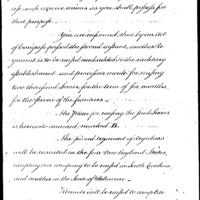 and such expence incurred as you shall propose for
that purpose.
You are informed, that by an act
of Congress passed the second instant, another re-
giment is to be raised and added to the military
establishment and provision made for raising
two thousand levies, for the term of six months,
for the service of the frontiers.
The Plan for raising the said levies
is hereunto annexed, marked B.
The second regiment of regulars
will be recruited in the two New England States,
company one company to be raised in South Carolina,
and another in the State of Delaware.
Recruits will be raised to complete